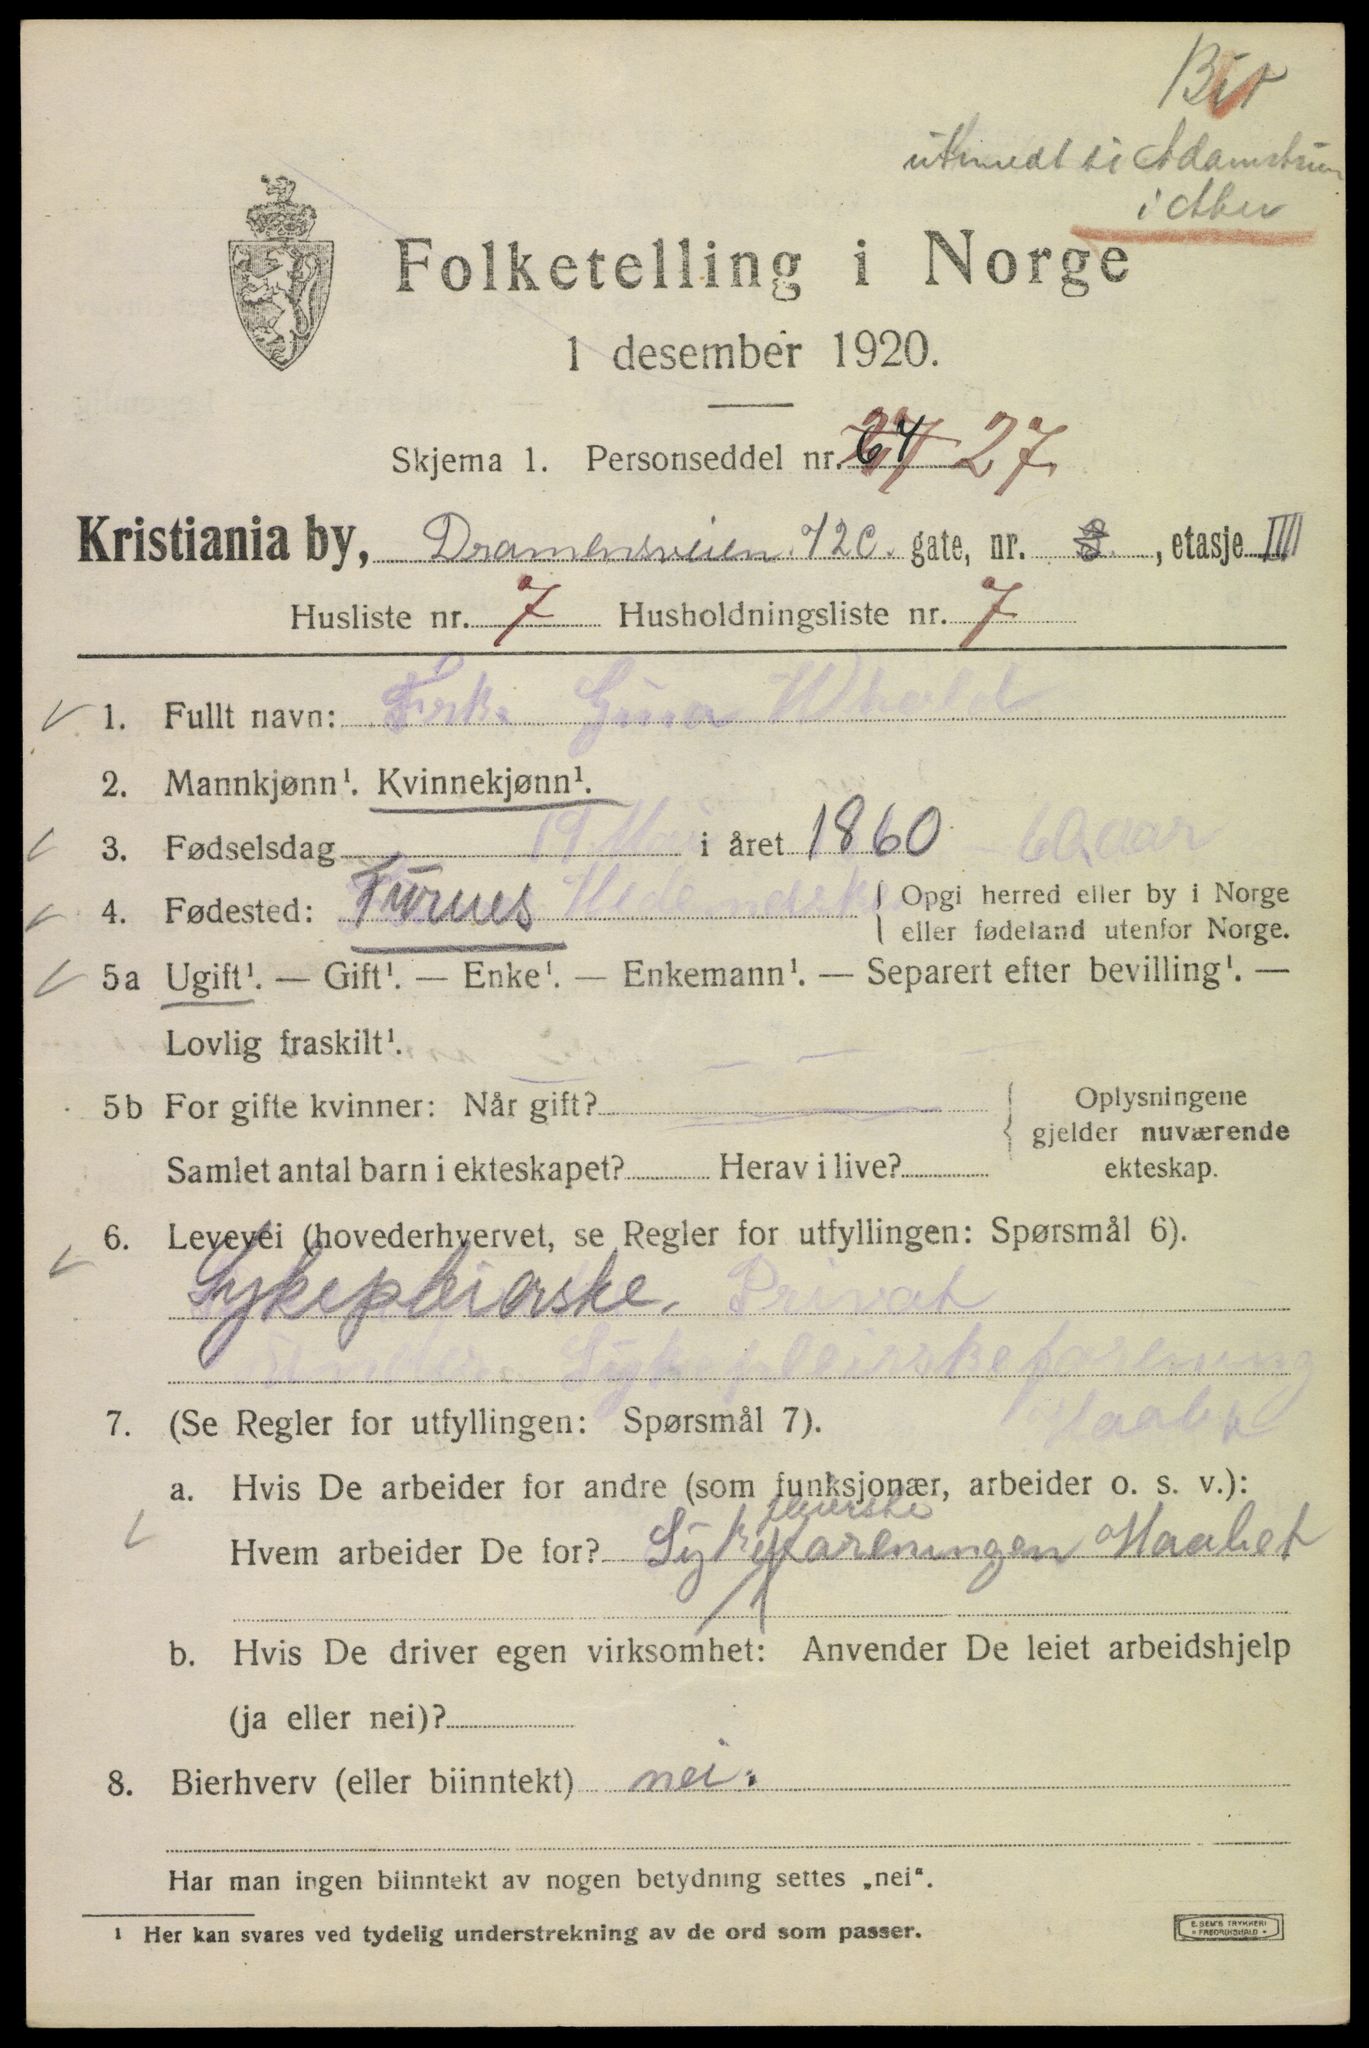 i Aker
Folketelling i Norge
1 desember 1920.
Skjema 1. Personseddel nr. 64 27
Kristiania by, Dramensveien 72c. gate, nr. 3, etasje IIII
Husliste nr. 7 Husholdningsliste nr. 7
1. Fullt navn: Frk. Gina Whold
2. Mannkjønn¹. Kvinnekjønn¹.
3. Fødselsdag 19 Mai i året 1860 - 60 aar
4. Fødested: Furnes Hedemarken { Opgi herred eller by i Norge
eller fødeland utenfor Norge.
5a Ugift¹. — Gift¹. — Enke¹. — Enkemann¹. — Separert efter bevilling¹. —
Lovlig fraskilt¹.
5b For gifte kvinner: Når gift?
Samlet antal barn i ekteskapet? Herav i live?
Oplysningene
gjelder nuværende
ekteskap.
6. Levevei (hovederhvervet, se Regler for utfyllingen: Spørsmål 6).
Sykepleierske. Privat
under Sykepleierskeforening
Haabet
7. (Se Regler for utfyllingen: Spørsmål 7).
a. Hvis De arbeider for andre (som funksjonær, arbeider o. s. v.):
pleierske
Hvem arbeider De for? Sykeforeningen Haabet
b. Hvis De driver egen virksomhet: Anvender De leiet arbeidshjelp
(ja eller nei)?
8. Bierhverv (eller biinntekt) nei.
Har man ingen biinntekt av nogen betydning settes „nei“.
¹ Her kan svares ved tydelig understrekning av de ord som passer.
E. SEM'S TRYKKERI
FREDRIKSHALD